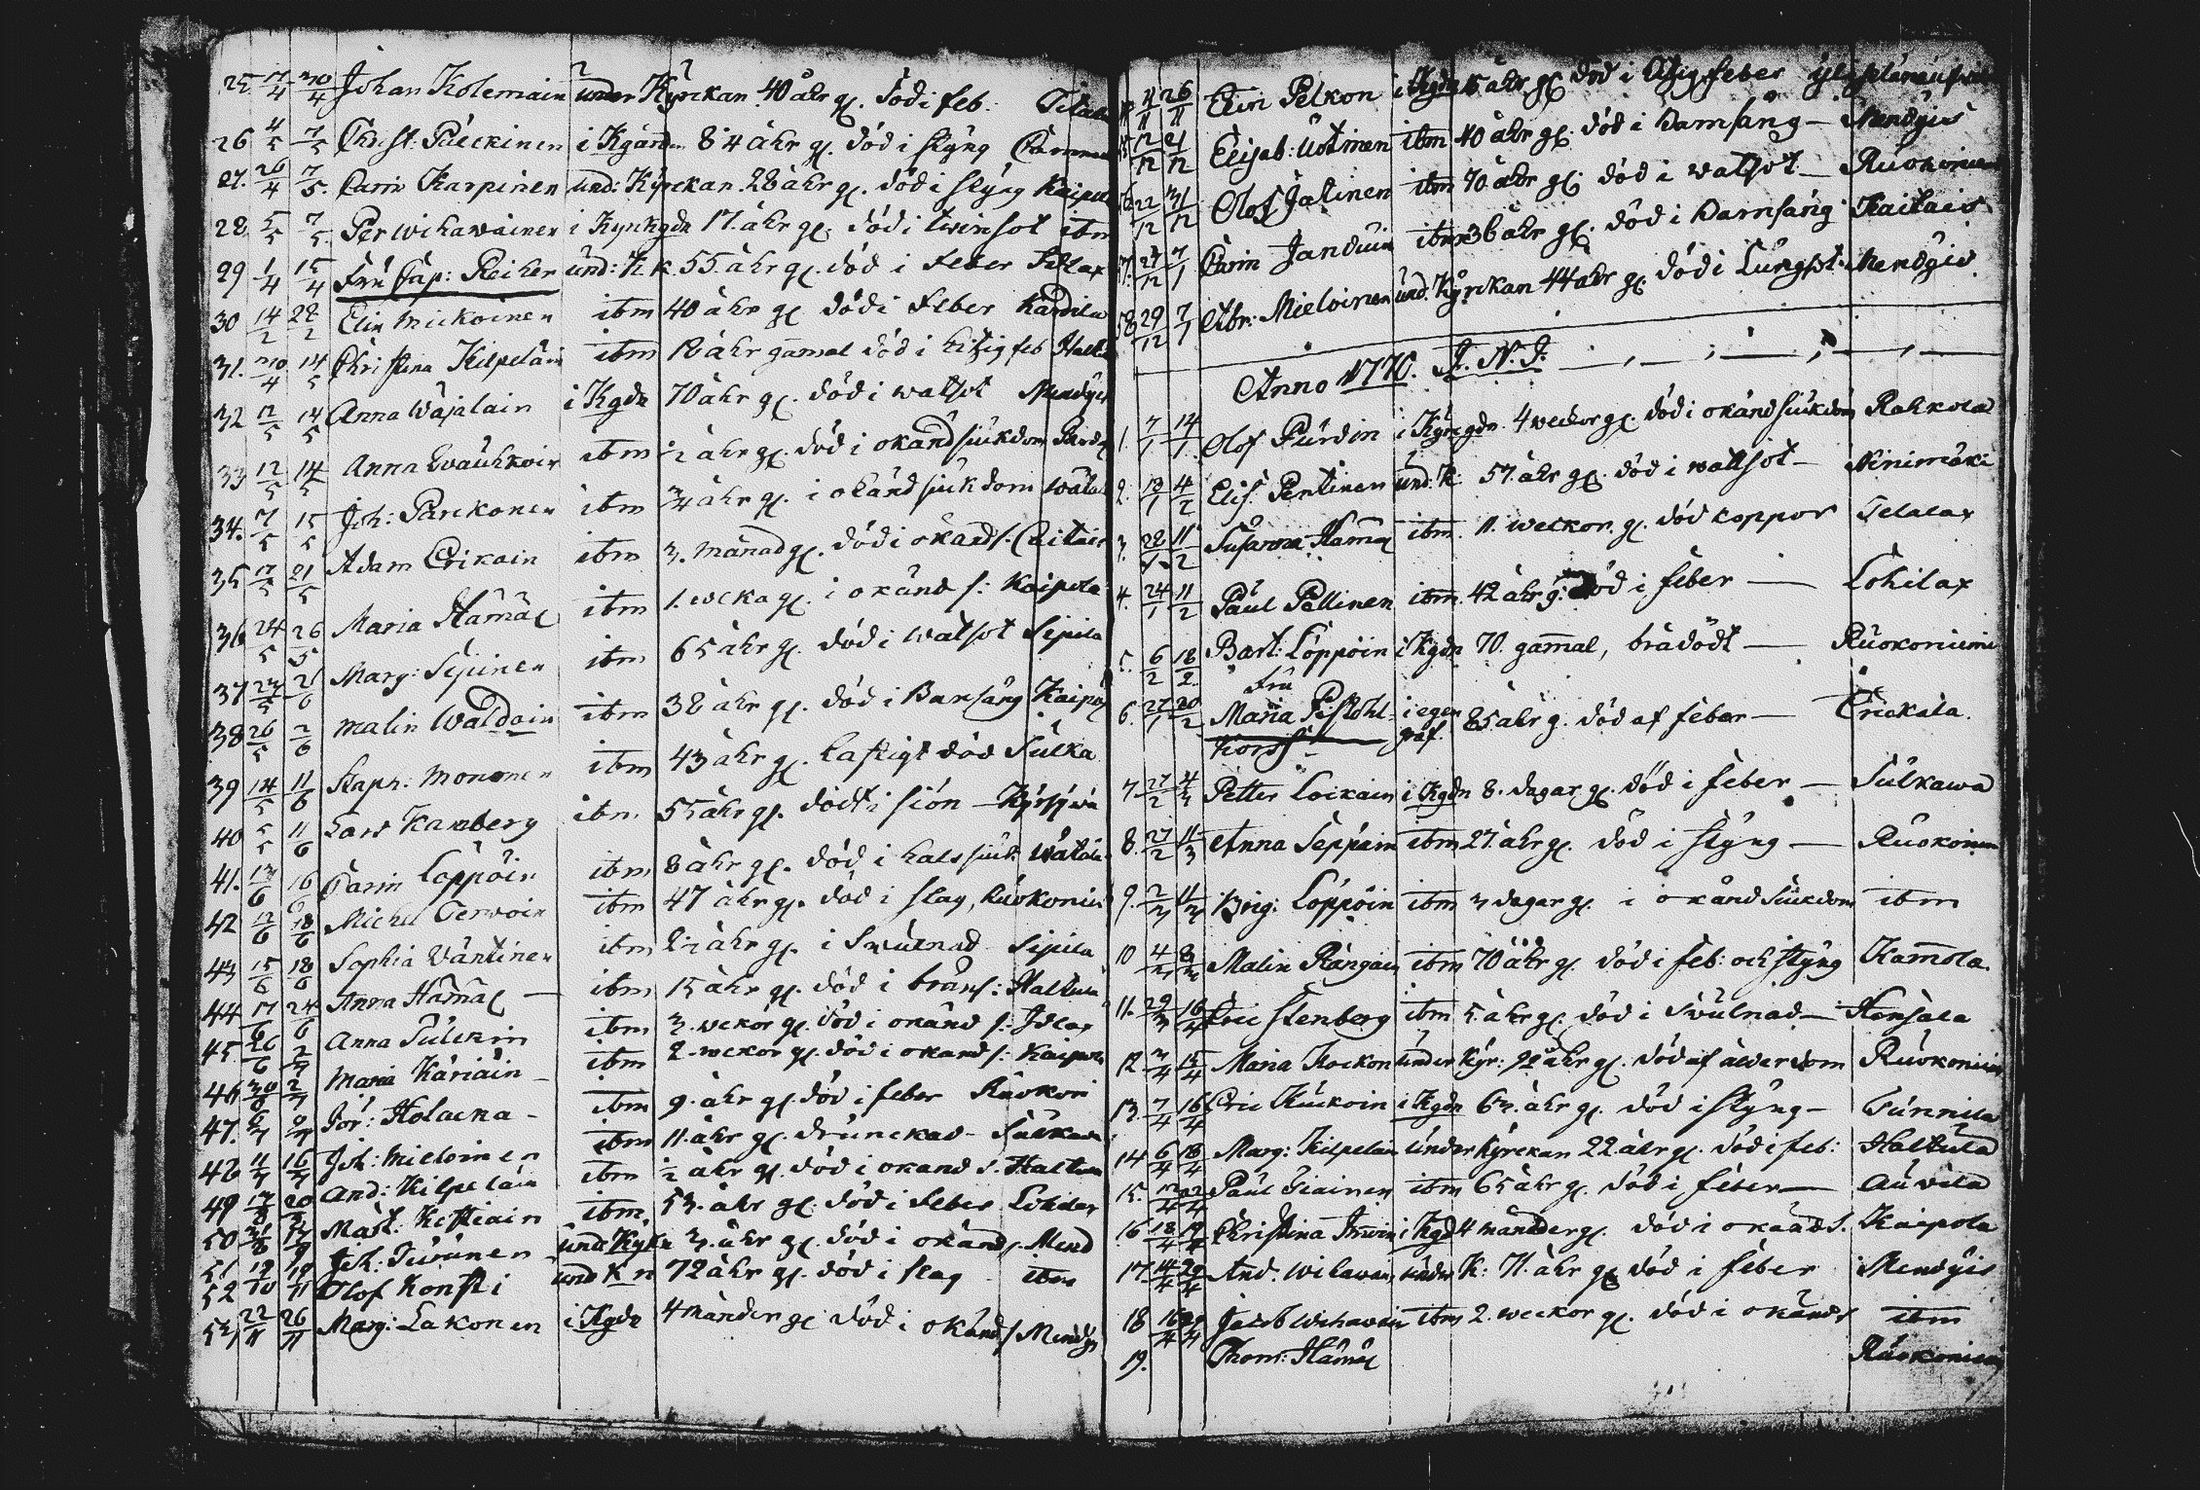 25 17/4 30/4 Johan Kolemain under Kyrckan 40 åhr gl. död i feb:
26 4/5 7/5 Christ: Päickinen i Kgården 84 åhr gl. död i styng
27. 26/4 7/5. Carin Karpinen und: Kyrckan 28 åhr gl. död i styng Kaipol
28 5/5 7/5. Per Wihawainen i Kyrkgdn 17. åhr gl. död i twinsot ibm
29 1/4 15/4 Fru Cap: Reiher und: Kk. 55. åhr gl. död i Feber Idlax
30 14/2 28/2 Elin Mickoinen ibm 40 åhr gl. död i Feber Kärdila
31. 30/4 14/5 Christina Kilpeläin ibm 18 åhr gamal död i hitzig feb
32 12/5 14/5 Anna Wäjalain i Kgdn 70 åhr gl. död i watsot
33 12/5 14/5 Anna Wauhkoin ibm 1/2 åhr gl. död i okänd siukdom
34. 7/5 15/5 Joh: Parckonen ibm 3/4 åhr gl. i okänd siukdom
35 17/5 21/5 Adam Erikain ibm 3. månad gl. död i okänd s. Caitais
36 24/5 26/5 Maria Hämäl ibm 1. weka gl. i okänd s: Kaipola
37 27/5 2/6 Marg: Sijuinen ibm 65 åhr gl. död i watsot Sipila
38 26/5 2/6 Malin Waldain ibm 38 åhr gl. död i Barsäng Kaipol
39 14/5 11/6 Staph: Mononen ibm 43 åhr gl. hastigt död Sulka
40 5/5 11/6 Lars Kamberg ibm 55 åhr gl. dödt i siön
41. 13/6 16/6 Carin Loppöin ibm 8 åhr gl. död i halssiuk
42 12/6 18/6 Michel Terwoin ibm 47 åhr gl. död i slag, Ruokonie
43 15/6 18/6 Sophia Väntinen ibm åhr gl. i Swulnad Sipila
44 17/6 24/6 Anna Hämäl ibm 15 åhr gl. död i bräns:
45. 26/6 2/7 Anna Sulckin ibm 3. wekor gl. död i okänd s: Idlax
46 30/6 2/7 Maria Käriäin ibm 2. wekor gl. död i okänd s: Kaipola
47. 6/7 9/7 Jör: Holacka ibm 9. åhr gl. död i feber Ruokon
48 11/7 16/7 Joh: Mieloinen ibm 11. åhr gl. drunckad Sulkaw
49 17/8 20/8 And: Kilpeläin ibm 1/2 åhr gl. död i okänd s.
50 Mart: ibm 53. åhr gl. död i Feber
51 Joh: und Kyrk 3. åhr gl. död i okänd s. Mend
52 19/10 19/11 Olof Konsti und K n 72 åhr gl. död i slag ibm
53 22/11 26/11 Marg: Lakonen i Kgdn 4 månder gl. död i okänd s Mendys
4/11 26/11 Elin Pelkon i Kgdn åhr gl. död i hitzig feber
12/12 21/12 Elisab: Uotinen ibm 40 åhr gl. död i Barnsäng — Mendyis
56. 22/12 31/12 Olof Jalinen ibm 70 åhr gl. död i watsot — Ruokoniemi
57. 27/12 7/1 Carin Janduin ibm 36 åhr gl. död i Barnsäng Kaitais
58 29/12 7/1 Abr: Mieloinen und: Kyrckan 44 åhr gl. död i Lungst: Mendyis
Anno 1770. J. N. J.
1. 7/1 14/1. Olof Purdin i Kyrcgdn. 4 weckor gl. död i okänd siukdom Rahkola
2. 13/1 4/2 Elis. Pentinen und: K. 57. åhr gl. död i wattsot — Ninimäki
3. 28/1 11/2 Susanna Hämäl ibm. 11. weckor. gl. död koppor Telalax
4. 24/1 11/2 Paul Pellinen ibm. 42 åhr g: död i feber — Lohilax
5. 6/2 18/2. Bart: Loppöin i Kgdn 70. gammal, brådödt — Ruokoniemi
6. 27/1 20/2 Fru Maria Pistohl- Korss i egen graf. 85 åhr g. död af feber — Erickala.
7. 27/2 4/3 Petter Loikain i Kgdn 8. dagar gl. död i feber — Sulkawa
8. 27/2 11/3 Anna Seppäin ibm 27. åhr gl. död i styng — Ruokoniem
9. 2/3 11/3 Brig: Loppöin ibm 3 dagar gl. i okänd siukdom ibm
10 4/3 Malin Rängäin ibm 70 åhr gl. död i feb: och styng Kamola.
11. 29/3 16/4 Eric Stenberg ibm 5. åhr gl. död i Swulnad — Honsala
12 3/4 15/4 Maria Kockon under Kyr: 92 åhr gl. död af ålderdom Ruokoniem
13. 7/4 16/4 Eric Kuckoin i Kgdn 63. åhr gl. död i styng — Tunnila
14 6/4 18/4 Marg: Kilpeläin under Kyrckan 22 åhr gl. död i feb: Haltula
15. 17/4 22/4 Paul Tiainen ibm 65 åhr gl. död i feber — Auwila
16. 18/4 Christina i Kgd 4 månder gl. död i okänd s. Kaipola
17. 14/4 29/4 And. Wilawain under K: 71. åhr gl. död i feber Mendyis
18 16/4 29/4 Jacob Wihawain ibm 2. weckor gl. död i okänd s ibm
19. Thom: Hämäl Ruokoniemi